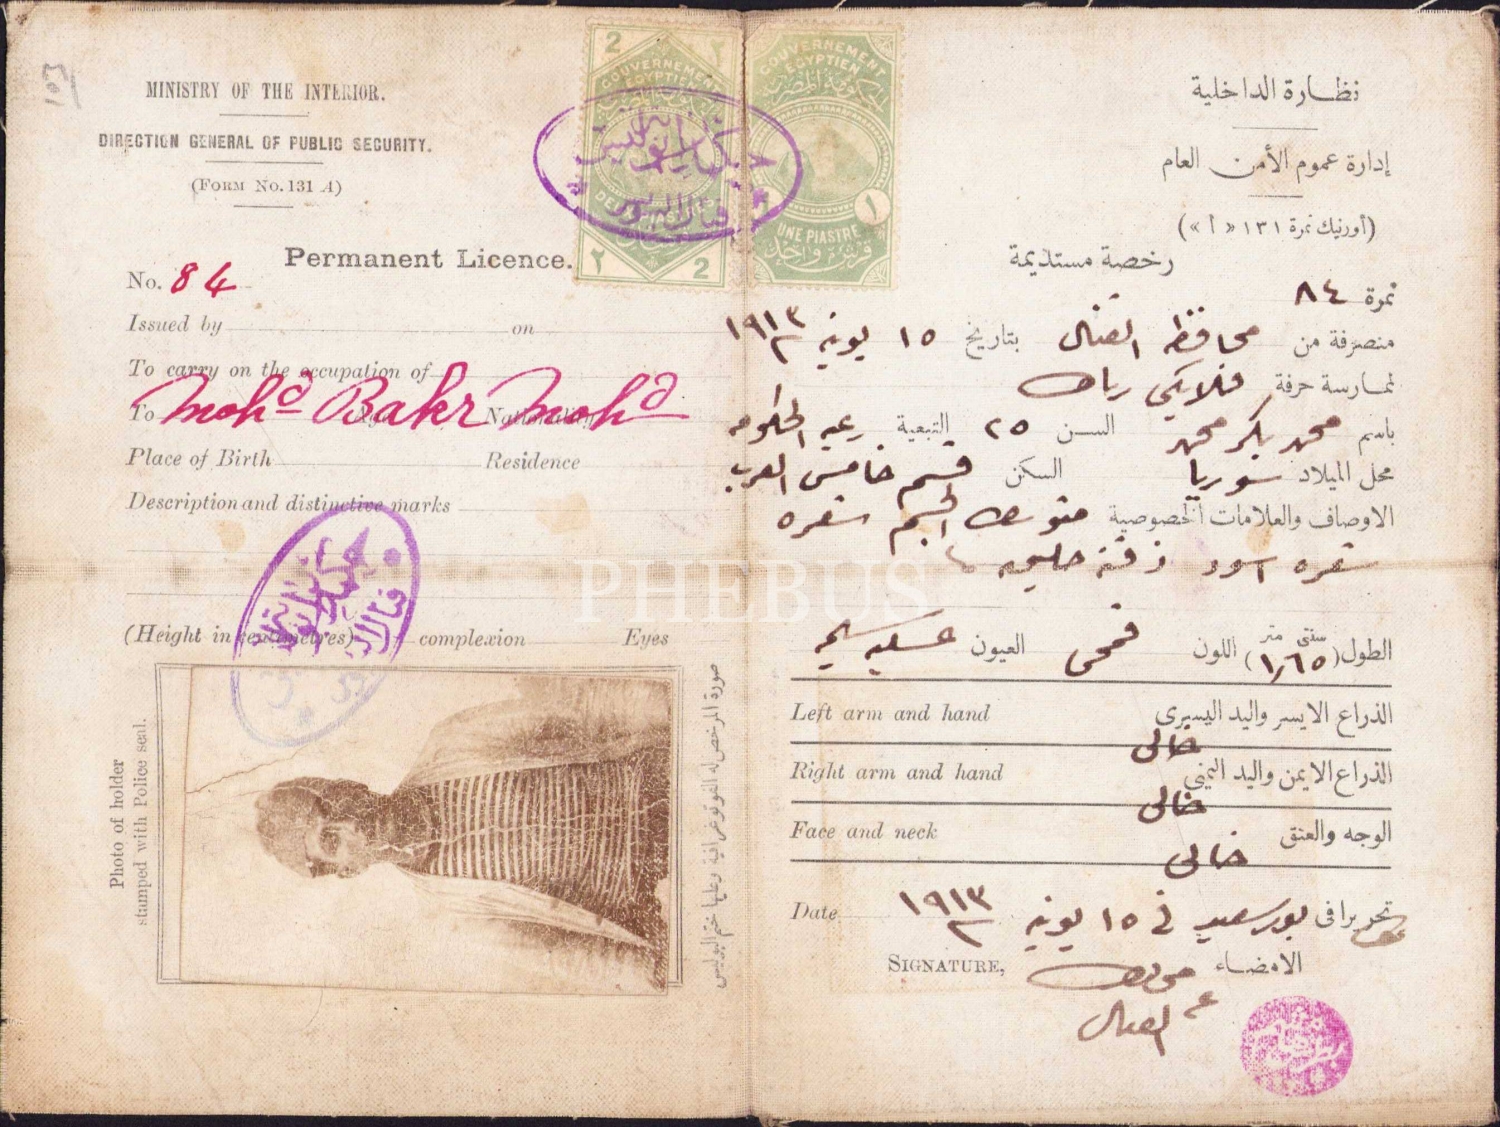 MINISTRY OF THE INTERIOR.
DIRECTION GENERAL OF PUBLIC SECURITY.
(FORM No. 131 A)
Permanent Licence.
No. 84
Issued by on
To carry on the occupation of
To Mohd Bakr Mohd Age Nationality
Place of Birth Residence
Description and distinctive marks
(Height in centimetres) complexion Eyes
Photo of holder
stamped with Police seal.
صورة المرخص له الفوتوغرافية وعليها ختم البوليس
2 ٢
GOUVERNEMENT
EGYPTIEN
DEUX PIASTRES
٢ 2
GOUVERNEMENT
EGYPTIEN
الحكومة المصرية
1 ١
UNE PIASTRE
قرش واحد
نظارة الداخلية
إدارة عموم الأمن العام
(أورنيك نمرة ١٣١ « أ »)
رخصة مستديمة
نمرة ٨٤
منصرفة من محافظة القنال بتاريخ ١٥ يونيه ١٩١٣
لممارسة حرفة
باسم محمد بكر محمد السن ٢٥ التبعية رعية الحكومه
محل الميلاد سوريا السكن قسم خامس العرب
الاوصاف والعلامات الخصوصية متوسط الجسم شعره
شعره اسود ذقنه حليقه
الطول (سنتى متر ١٫٦٥) اللون قمحى العيون عسليه
Left arm and hand الذراع الايسر واليد اليسرى
خالى
Right arm and hand الذراع الايمن واليد اليمنى
خالى
Face and neck الوجه والعنق
خالى
Date تحريرا فى بورسعيد فى ١٥ يونيه ١٩١٣
SIGNATURE, الامضاء محافظ
القنال
PHEBUS